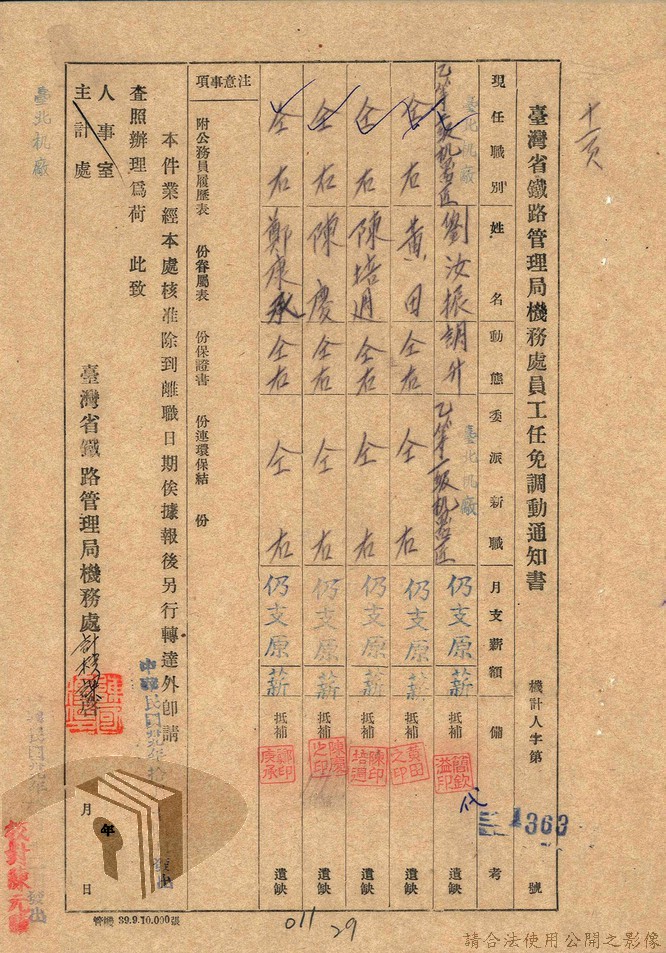 十一頁
臺灣省鐵路管理局機務處員工任免調動通知書
機計人字第 1363 號
現任職別
姓名
動態
委派新職
月支薪額
備考
臺北机廠
劉汝振 調升
臺北机廠
仍支原薪
抵補 遺缺
簡欽溢印
代
仝右
黃田
仝右
仝右
仍支原薪
抵補 遺缺
黃田之印
仝右
陳培迺
仝右
仝右
仍支原薪
抵補 遺缺
仝右
陳慶
仝右
仝右
仍支原薪
抵補 遺缺
陳慶之印
仝右
鄭康承
仝右
仝右
仍支原薪
抵補 遺缺
注意事項
附公務員履歷表 份眷屬表 份保證書 份連環保結 份
本件業經本處核准除到離職日期俟據報後另行轉達外卽請
查照辦理爲荷 此致
人事室
主計處
臺灣省鐵路管理局機務處
中華民國卅九年拾
發出
年 月 日
臺北机廠
管機 39.9.10.000張
011
29
請合法使用公開之影像